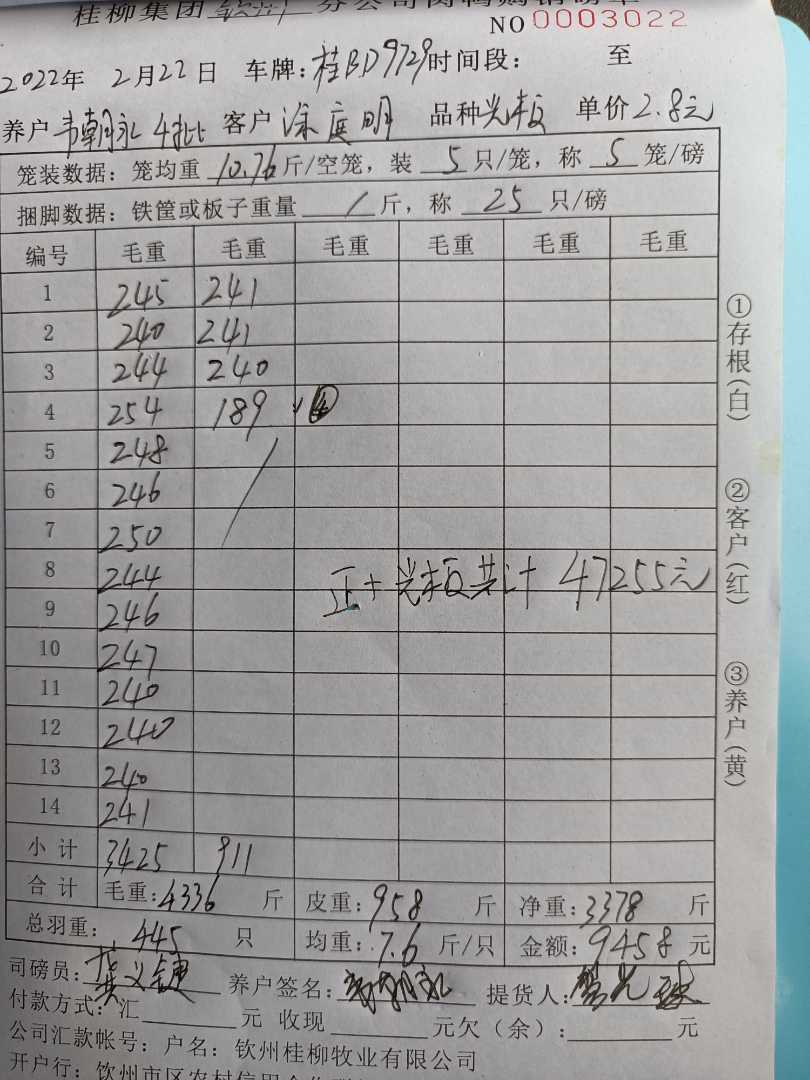 桂柳集团钦州分公司肉鸭购销磅单
NO 0003022
2022年 2月22日 车牌：桂BD9729 时间段： 至
养户 韦朝永 4批 客户 涂庭明 品种 光板 单价 2.8元
笼装数据：笼均重 10.76 斤/空笼，装 5 只/笼，称 5 笼/磅
捆脚数据：铁筐或板子重量 / 斤，称 25 只/磅
编号 毛重 毛重 毛重 毛重 毛重 毛重
1 245 241
2 240 241
3 244 240
4 254 189
5 248
6 246
7 250
8 244
正+光板共计 47255元
9 246
10 247
11 240
12 240
13 240
14 241
小计 3425 911
合计 毛重：4336 斤 皮重：958 斤 净重：3378 斤
总羽重： 445 只 均重：7.6 斤/只 金额：9458 元
司磅员： 养户签名：韦朝永 提货人：
付款方式：汇 元 收现 元欠（余）： 元
公司汇款帐号：户名：钦州桂柳牧业有限公司
开户行：钦州市区农村信用合作
①存根（白）
②客户（红）
③养户（黄）